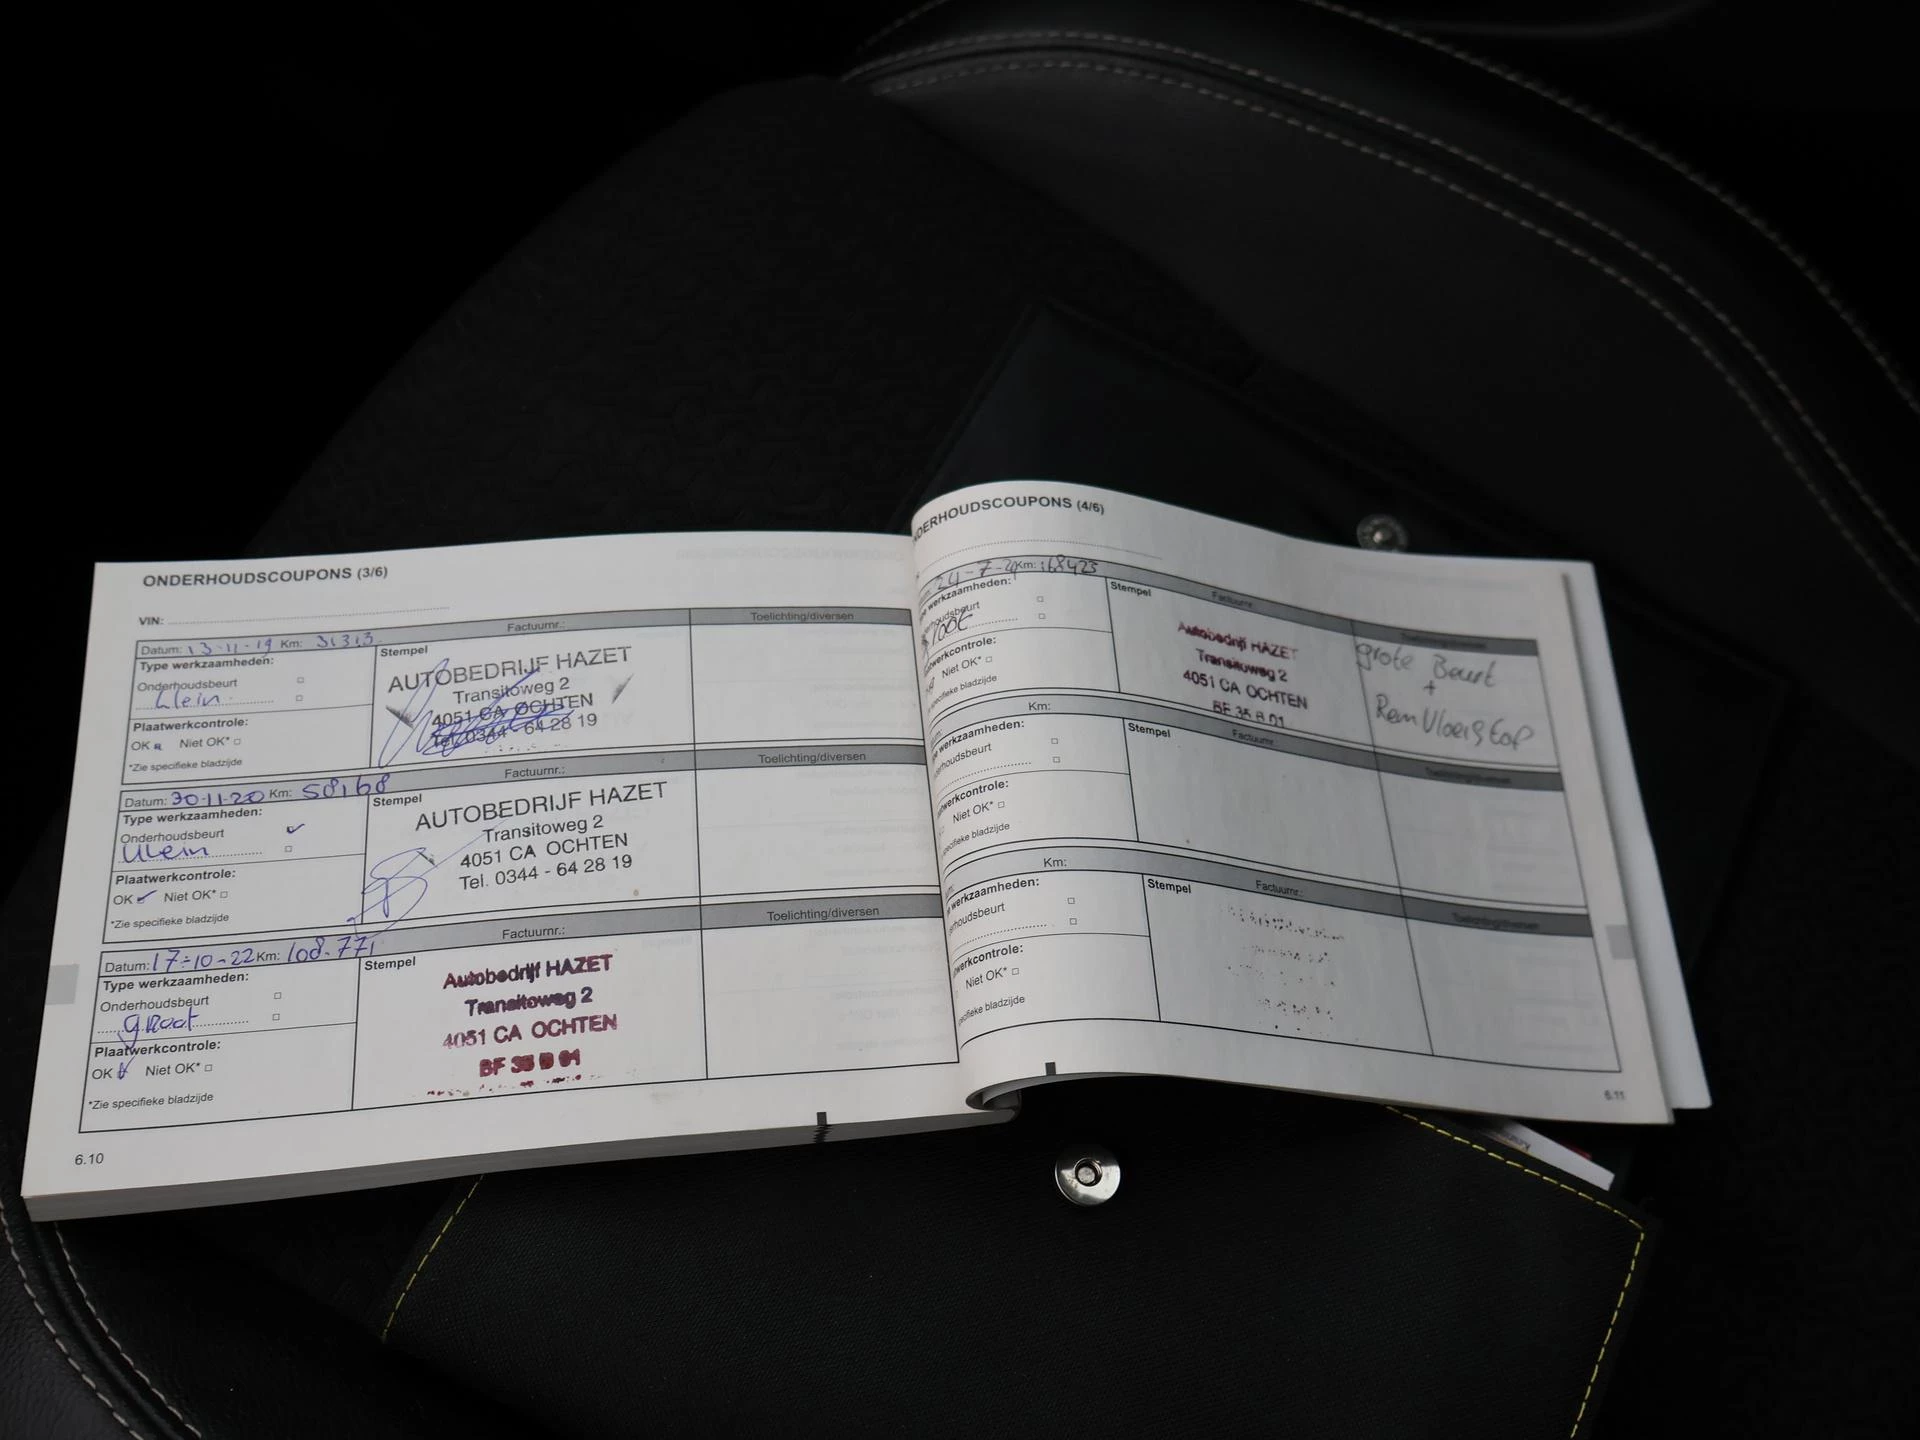 ONDERHOUDSCOUPONS (3/6)
VIN:
Datum: 13-11-19 Km: 31313 Factuurnr.: Toelichting/diversen
Type werkzaamheden:
Onderhoudsbeurt
klein
Plaatwerkcontrole:
OK Niet OK*
*Zie specifieke bladzijde
Stempel
AUTOBEDRIJF HAZET
Transitoweg 2
4051 CA OCHTEN
Tel. 0344 - 64 28 19
Datum: 30-11-20 Km: 58168 Factuurnr.: Toelichting/diversen
Type werkzaamheden:
Onderhoudsbeurt
klein
Plaatwerkcontrole:
OK Niet OK*
*Zie specifieke bladzijde
Stempel
AUTOBEDRIJF HAZET
Transitoweg 2
4051 CA OCHTEN
Tel. 0344 - 64 28 19
Datum: 17-10-22 Km: 108.771 Factuurnr.: Toelichting/diversen
Type werkzaamheden:
Onderhoudsbeurt
groot
Plaatwerkcontrole:
OK Niet OK*
*Zie specifieke bladzijde
Stempel
Autobedrijf HAZET
Transitoweg 2
4051 CA OCHTEN
6.10
NDERHOUDSCOUPONS (4/6)
24-7- Km: 168423 Factuurnr.: Toelichting/diversen
werkzaamheden:
houdsbeurt
werkcontrole:
Niet OK*
specifieke bladzijde
Stempel
Autobedrijf HAZET
Transitoweg 2
4051 CA OCHTEN
grote Beurt
+
Rem Vloeistof
Km: Factuurnr.: Toelichting/diversen
werkzaamheden:
derhoudsbeurt
werkcontrole:
Niet OK*
specifieke bladzijde
Stempel
Km: Factuurnr.: Toelichting/diversen
werkzaamheden:
rhoudsbeurt
werkcontrole:
Niet OK*
specifieke bladzijde
Stempel
6.11